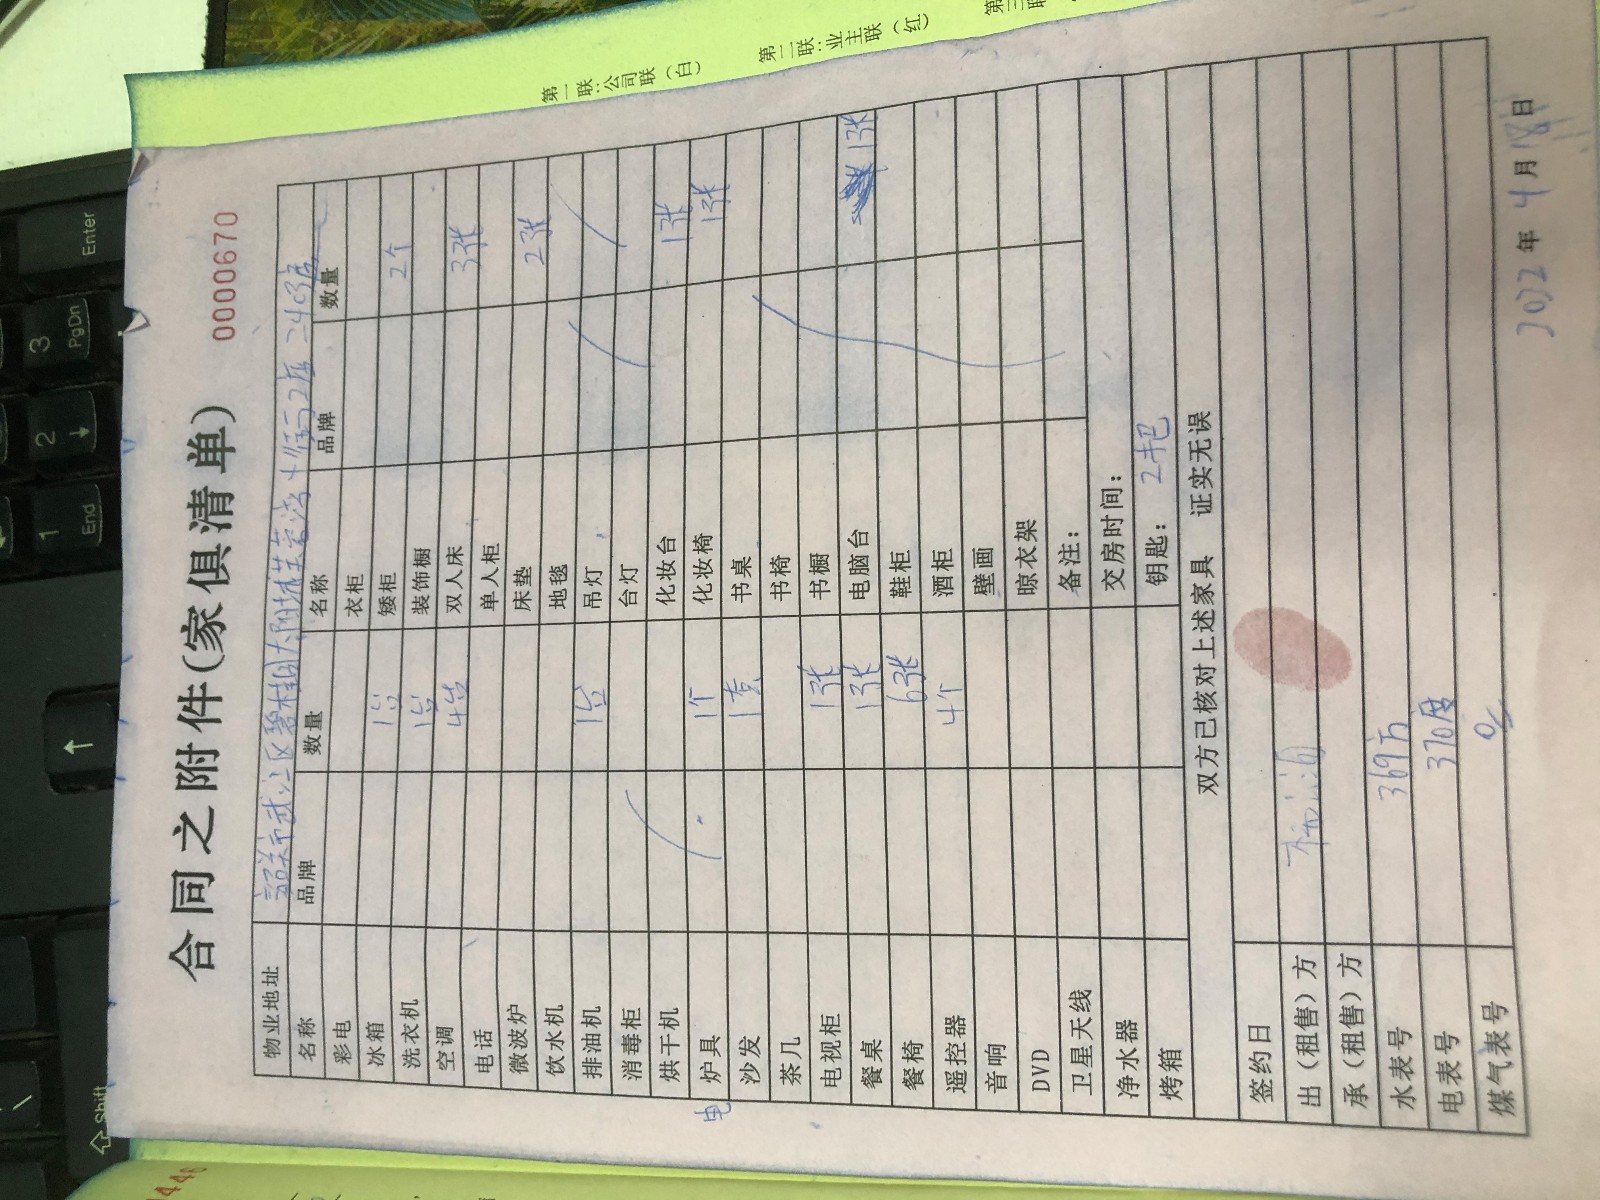 第一联:公司联(白)
第二联:业主联(红)
合同之附件(家俱清单)
0000670
物业地址 韶关市武江区碧桂园太阳城芙蓉湾
名称 品牌 数量 名称 品牌 数量
彩电 衣柜
冰箱 1台 矮柜 2个
洗衣机 1台 装饰橱
空调 4台 双人床 3张
电话 单人柜
微波炉 床垫 2张
饮水机 地毯
排油机 1台 吊灯
消毒柜 台灯
烘干机 化妆台 1张
电炉具 1个 化妆椅 1张
沙发 1套 书桌
茶几 书椅
电视柜 1张 书橱
餐桌 1张 电脑台 1张
餐椅 6张 鞋柜
遥控器 4个 酒柜
音响 壁画
DVD 晾衣架
卫星天线 备注:
净水器 交房时间:
烤箱 钥匙: 2把
双方已核对上述家具 证实无误
签约日
出(租售)方
承(租售)方
水表号 369方
电表号 3710度
煤气表号 0
2022年4月18日
Enter
3
PgDn
2
1
End
Shift